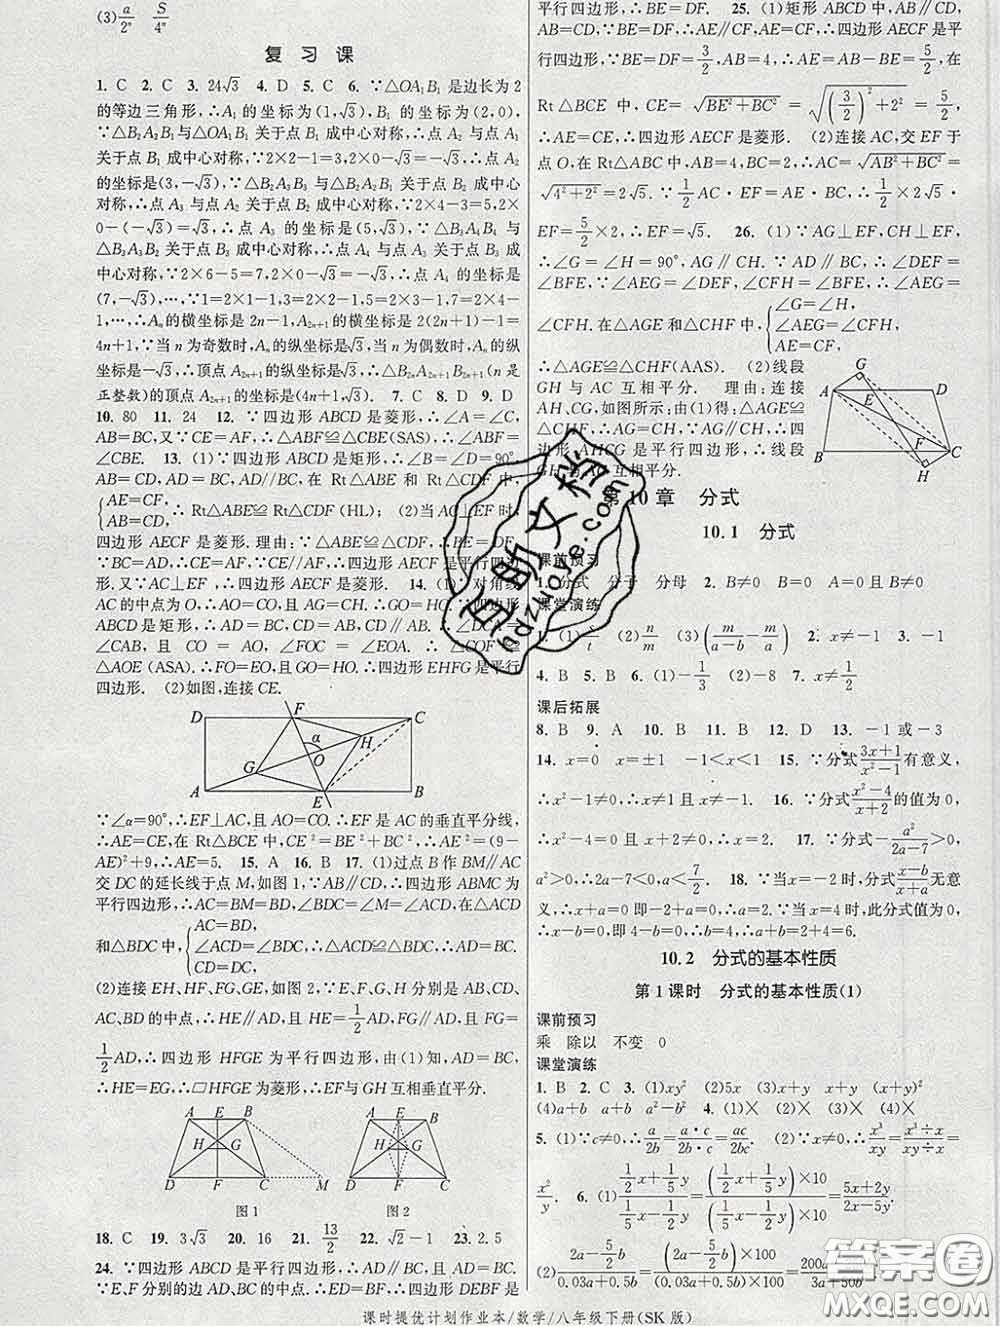 (3) a/2ⁿ S/4ⁿ
复 习 课
1. C 2. C 3. 24√3 4. D 5. C 6. ∵△OA₁B₁ 是边长为2
的等边三角形,∴A₁ 的坐标为(1,√3),B₁ 的坐标为(2,0),
∵△B₂A₂B₁与△OA₁B₁ 关于点 B₁ 成中心对称,∴点 A₂ 与点 A₁
关于点 B₁ 成中心对称,∵2×2-1=3,2×0-√3=-√3,∴点 A₂
的坐标是(3,-√3),∵△B₂A₃B₃ 与△B₂A₂B₁ 关于点 B₂ 成中心
对称,∴点 A₃ 与点 A₂ 关于点 B₂ 成中心对称,∵2×4-3=5,2×
0-(-√3)=√3,∴点 A₃ 的坐标是(5,√3),∵△B₃A₄B₄ 与
△B₂A₃B₃ 关于点 B₃ 成中心对称,∴点 A₄ 与点 A₃ 关于点 B₃ 成
中心对称,∵2×6-5=7,2×0-√3=-√3,∴点 A₄ 的坐标是
(7,-√3),…,∵1=2×1-1,3=2×2-1,5=2×3-1,7=2×4-
1,…,∴Aₙ的横坐标是 2n-1,A₂ₙ₊₁的横坐标是 2(2n+1)-1=
4n+1,∵当 n 为奇数时,Aₙ的纵坐标是√3,当 n 为偶数时,Aₙ的
纵坐标是-√3,∴顶点 A₂ₙ₊₁的纵坐标是√3,∴△B₂ₙA₂ₙ₊₁B₂ₙ₊₁(n 是
正整数)的顶点 A₂ₙ₊₁的坐标是(4n+1,√3). 7. C 8. D 9. D
10. 80 11. 24 12. ∵四边形 ABCD 是菱形,∴∠A=∠C,
AB=CB,又∵CE=AF,∴△ABF≌△CBE(SAS),∴∠ABF=
∠CBE. 13. (1)∵四边形 ABCD 是矩形,∴∠B=∠D=90°,
AB=CD,AD=BC,AD//BC,在 Rt△ABE 和 Rt△CDF 中,
{AE=CF, AB=CD, ∴ Rt△ABE≌Rt△CDF (HL). (2)当 AC⊥EF 时,
四边形 AECF 是菱形.理由:∵△ABE≌△CDF,∴BE=DF,
∵BC=AD,∴CE=AF,∵CE//AF,∴四边形 AECF 是平行四边
形.又∵AC⊥EF,∴四边形 AECF 是菱形. 14. (1)∵对角线
AC 的中点为 O,∴AO=CO,且 AG=CH,∴GO=HO.∵四边形
ABCD 是矩形,∴AD=BC,CD=AB,CD//AB,∴∠DCA=
∠CAB,且 CO=AO,∠FOC=∠EOA,∴△COF≌
△AOE (ASA),∴FO=EO,且 GO=HO.∴四边形 EHFG 是平行
四边形. (2)如图,连接 CE.
D F C α H O G A E B
∵∠α=90°,∴EF⊥AC,且 AO=CO.∴EF 是 AC 的垂直平分线,
∴AE=CE,在 Rt△BCE 中,CE²=BE²+BC²,∴AE²=(9-
AE)²+9,∴AE=5. 15. A 16. B 17. (1)过点 B 作 BM//AC
交 DC 的延长线于点 M,如图 1,∵AB//CD,∴四边形 ABMC 为
平行四边形,∴AC=BM=BD,∠BDC=∠M=∠ACD,在△ACD
和△BDC 中,{AC=BD, ∠ACD=∠BDC, CD=DC, ∴△ACD≌△BDC,∴AD=BC.
(2)连接 EH,HF,FG,GE,如图 2,∵E,H 分别是 AB,
BD 的中点,∴HE//AD,且 HE=1/2AD,FG//AD,且 FG=
1/2AD,∴四边形 HFGE 为平行四边形,由(1)知,AD=BC,
∴HE=EG,∴▱HFGE 为菱形,∴EF与GH 互相垂直平分.
A E B H G D F C M A E B H G D F C
图 1 图 2
18. C 19. 3√3 20. 16 21. 13/2 22. √2-1 23. 2.5
24. ∵四边形 ABCD 是平行四边形,∴AD//BC,AD=BC.
∵E,F 分别是边 BC,AD 的中点,∴ED=BF,∴四边形 DEBF 是
平行四边形,∴BE=DF. 25. (1)∵矩形 ABCD,
∴AB=CD=4,AB//CD,∵AE//CF,AF//CE,∴四边形 AECF 是平
行四边形,∵BE=DF=3/2,∴AE=AB-BE=5/2,在
Rt△BCE 中,CE=√(BE²+BC²)=√((3/2)²+2²)=5/2,
∴AE=CE,∴四边形 AECF 是菱形. (2)连接 AC,交 EF 于
点 O,在 Rt△ABC 中,AB=4,BC=2,∴AC=√(AB²+BC²)=
√(4²+2²)=2√5.∵1/2AC·EF=AE·BC,∴1/2×2√5·
EF=5/2×2,∴EF=√5. 26. (1)∵AG⊥EF,CH⊥EF,
∴∠G=∠H=90°,AG//CH,∵AD//BC,∴∠DEF=
∠BFE,∵∠AEG=∠DEF,∠CFH=∠BFE,∴∠AEG=
∠CFH. 在△AGE 和△CHF 中,{∠G=∠H, ∠AEG=∠CFH,
∴△AGE≌△CHF(AAS). (2)线段
GH 与 AC 互相平分. 理由:连接
AH,CG,如图所示:由(1)得:△AGE≌
△CHF,∴AG=CH,∵AG//CH,∴四
边形 AHCG 是平行四边形,∴线段
互相平分.
G A E D B F C H
10 章 分式
10.1 分式
课前预习
1. 分式 分子 分母 2. B≠0 B=0 A=0且B≠0
课堂演练
1. (1) (2) n/m (3) (m/(a-b) - m/a) 2. x≠-1 3. -1
4. B 5. B 6. (1)-1/3 (2)-8 7. x≠1/2
课后拓展
8. B 9. A 10. B 11. B 12. D 13. -1或-3
14. x=0 x=±1 -1<x<1 15. ∵分式(3x+1)/(x²-1)有意义,
∴x²-1≠0,∴x≠±1. 16. ∵分式(x²-4)/(x+2)的值为 0,
∴x²-4=0 且 x+2≠0,∴x=2. 17. ∵分式-a²/(2a-7)>0,
a²>0,∴2a-7<0,∴a<7/2. 18. ∵当 x=-2时,分式(x-b)/(x+a)无意
义,∴x+a=0,即-2+a=0,∴a=2.∵当 x=4时,此分式值为
0,∴x-b=0,即 4-b=0,∴b=4,∴a+b=2+4=6.
10.2 分式的基本性质
第 1 课时 分式的基本性质(1)
课前预习
乘 除以 不变 0
课堂演练
1. B 2. C 3. (1)xy² (2)5x (3)x+y x+y x-y
(4)a+b a²-b² 4. (1)× (2)× (3)× (4)×
5. (1)∵c≠0,∴a/2b=(a·c)/(2b·c)=ac/2bc. (2)∵x≠0,∴x³/xy=(x³÷x)/(xy÷x)=
x²/y. 6. (1) (1/2x+1/5y)/(1/5x-1/2y)=((1/2x+1/5y)×10)/((1/5x-1/2y)×10)=(5x+2y)/(2x-5y).
(2) (2a-5/2b)/(0.03a+0.5b)=((2a-5/2b)×100)/((0.03a+0.5b)×100)=200a/(3a+50b)
课时提优计划作业本/数学/八年级下册(SK 版)
百助文档
答案圈
MXQE.COM